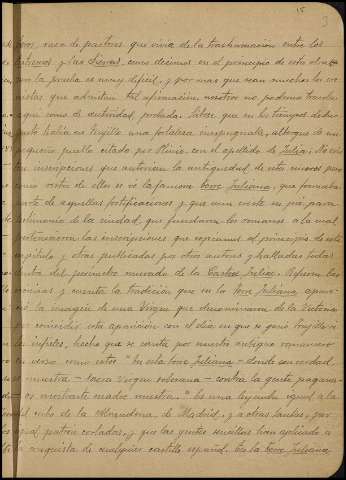 15
3
bros, raza de pastores que vivia de la trashumacion entre los
extremos y las sierras, como decimos en el principio de esta obra
la prueba es muy dificil, y por mas que sean muchos los
que admitan tal afirmacion, nosotros no podemos
que como de autoridad, probada. Sobre que en los tiempos de
habia en Trujillo una fortaleza inexpugnable, albergue de un
pequeño pueblo citado por Plinio con el apellido de Julia. No
inscripciones que autorizan la antiguedad de estos muros
como resto de ellos es la famosa torre Juliana, que formaba
parte de aquellas fortificaciones y que aun existe en pié, para
testimonio de la ciudad, que fundaron los romanos a la cual
pertenecieron las inscripciones que copiamos al principio de este
capitulo y otras publicadas por otros autores y halladas todas
dentro del perimetro murado de la Castra Julia. Refieren las
cronicas y cuenta la tradicion que en la torre Juliana apare-
ció la imagen de una Virgen que denominaron de la Victoria
por coincidir esta aparicion con el dia en que se ganó Trujillo
infieles, hecho que se canta por nuestro antiguo romancero
en versos como estos: "En esta torre Juliana – donde con verdad
se muestra – sacra Virgen soberana – contra la gente pagana
os mostraste madre nuestra." Es una leyenda igual a la
de la Almudena, de Madrid, y a otras tantas, por
igual patron cortadas, y que las gentes sencillas han aplicado a
la conquista de cualquier castillo español. En la torre Juliana